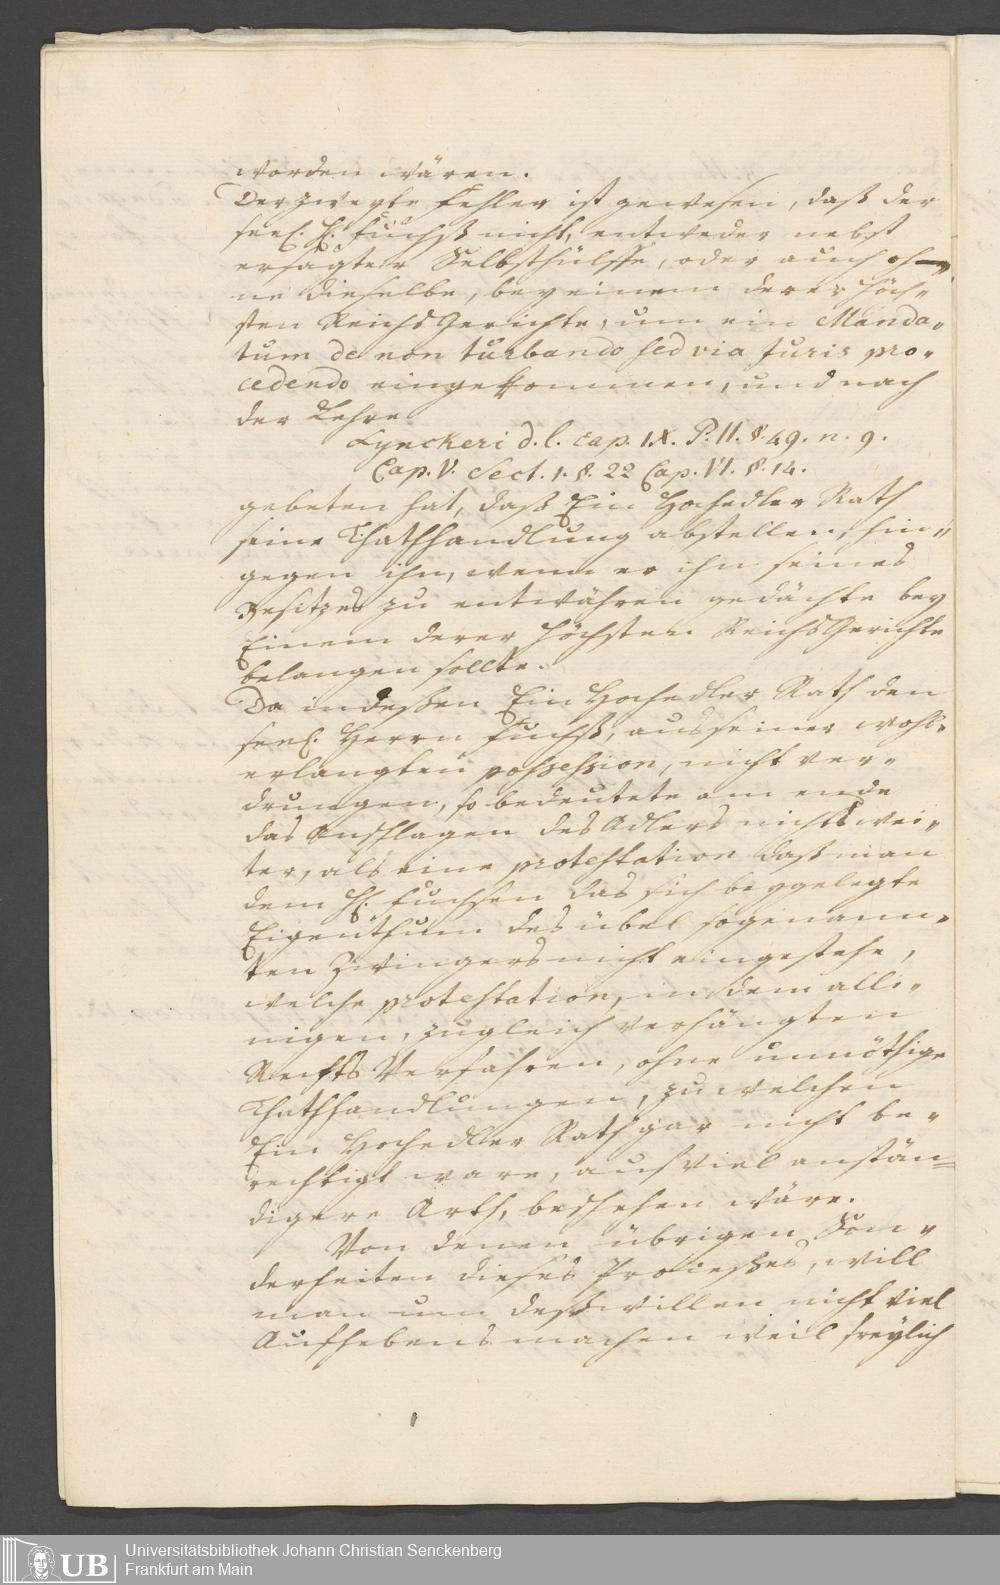 worden wären.
Der zweyte Fehler ist gewesen, daß der
seel. H. Fuchß nicht, entweder nebst
ersagter Selbsthülffe, oder auch oh-
ne dieselbe, bey einem derer Höch-
sten Reichs Gerichte, um ein Manda-
tum de non turbando sed via Juris pro-
cedendo eingekommen, und nach
der Lehre
Lynckeri d. l. cap. IX. P. II. §. 49. n. 9.
Cap. V. Sect. 1. §. 22 Cap. VI. §. 14.
gebeten hat, daß Ein Hochedler Rath
seine Thathandlung abstellen, hin-
gegen ihn, wenn er ihn seines
Besitzes zu entwähren gedächte bey
Einem derer Höchsten Reichs Gerichte
belangen sollte.
Da indeßen Ein Hochedler Rath den
seel. Herrn Fuchß, aus seiner wohl-
erlangten possession, nicht ver-
drungen, so bedeutete am ende
das Anschlagen des Adlers nichts wei-
ter, als eine protestation daß man
dem H. Fuchsen das sich beygelegte
Eigenthum des übel sogenann-
ten Zwingers nicht eingestehe,
welche protestation, in dem alli-
nigen, zugleich verhängten
Rechts Verfahren, ohne unnöthige
Thathandlungen, zu welchen
Ein Hochedler Rath gar nicht be-
rechtigt ware, auf viel anstän-
digere Arth, beschehen wäre.
Von denen übrigen Son-
derheiten dieses Processes, will
man um deßwillen nicht viel
Aufhebens machen weil freylich
UB
Universitätsbibliothek Johann Christian Senckenberg
Frankfurt am Main